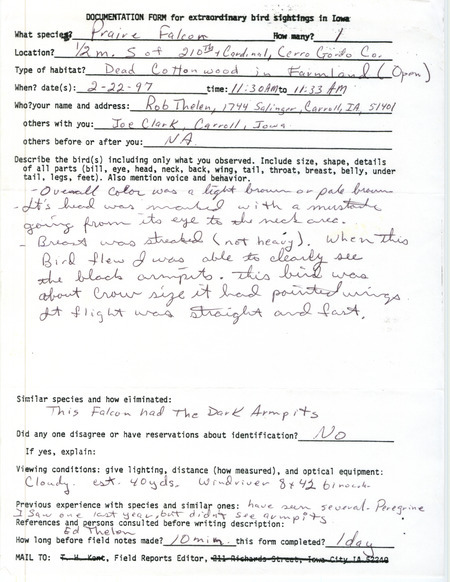 DOCUMENTATION FORM for extraordinary bird sightings in Iowa
What species? Praire Falcon How many? 1
Location? 1/2 m. S of 210th & Cardinal, Cerro Gordo Co.
Type of habitat? Dead Cottonwood in Farmland (Open)
When? date(s): 2-22-97 time: 11:30AM to 11:33 AM
Who? your name and address: Rob Thelen, 1744 Salinger, Carroll, IA, 51401
others with you: Joe Clark, Carroll, Iowa
others before or after you: NA
Describe the bird(s) including only what you observed. Include size, shape, details
of all parts (bill, eye, head, neck, back, wing, tail, throat, breast, belly, under
tail, legs, feet). Also mention voice and behavior.
- Overall color was a light brown or pale brown
- It's head was marked with a mustache
going from its eye to the neck area.
- Breast was streaked (not heavy). When this
Bird flew I was able to clearly see
the black armpits. This bird was
about Crow size it had pointed wings.
It flight was straight and fast.
Similar species and how eliminated:
This Falcon had The Dark Armpits
Did any one disagree or have reservations about identification? No
If yes, explain:
Viewing conditions: give lighting, distance (how measured), and optical equipment:
Cloudy. est. 40yds. Windriver 8x42 binock.
Previous experience with species and similar ones: have seen several. Peregrine
I saw one last year, but didn't see armpits.
References and persons consulted before writing description:
Ed Thelen
How long before field notes made? 10 min. this form completed? 1 day
MAIL TO: T. H. Kent, Field Reports Editor, 211 Richards Street, Iowa City IA 52240